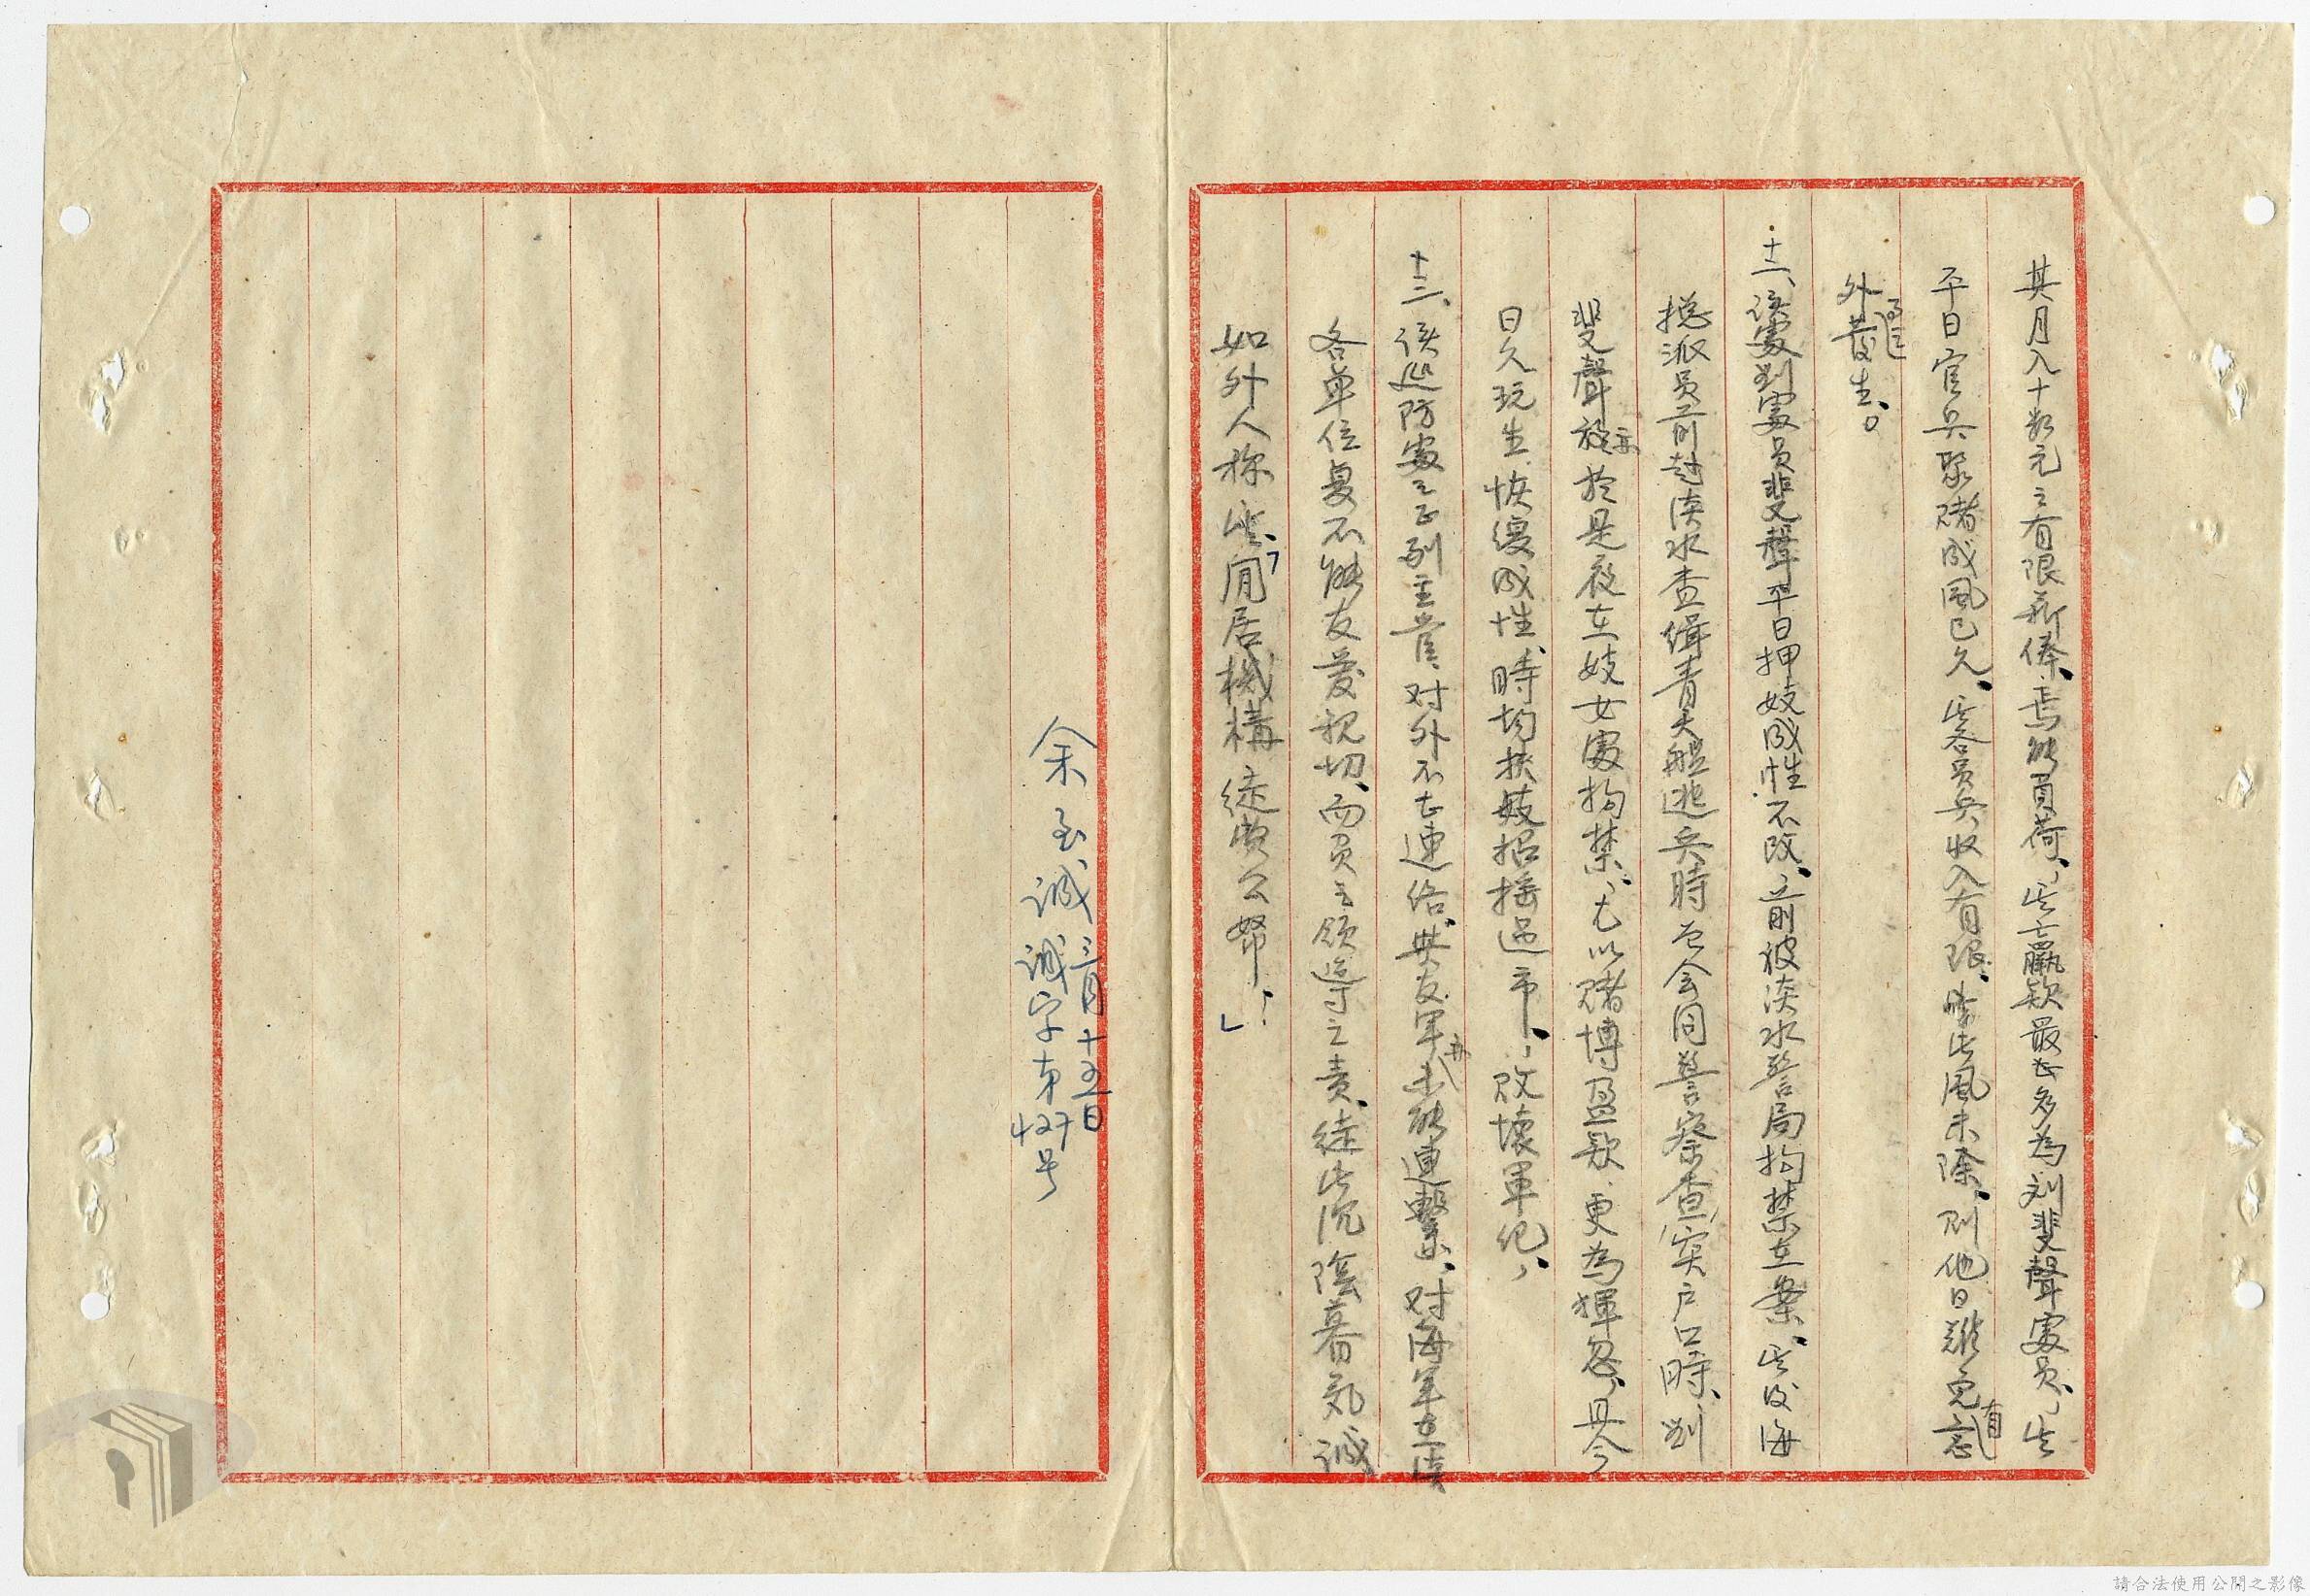 其月入十數元之有限薪俸、焉能負荷、此之贏款最大多為刘斐聲處員、此
平日官兵聚賭成風已久、此各員兵收入有限、此風未除、則他日難免有意
外事之發生。
十二、該處刘處員斐聲平日押妓成性不改、前被淡水警局拘禁在案、此次海
總派員前赴淡水查緝青天艦逃兵時會同警察查實户口時、刘
斐聲於是夜在妓女處拘禁、尤以賭博盈款更為揮忽、且今
日久玩生恢復成性、時均挾妓招搖過市、敗壞軍紀、
十三、該巡防處之正副主管、对外不去連絡、與友軍亦未能連繫、对海軍在淡
各单位復不能友愛親切、而負主領導之責、徒此沉陰暮氣、誠
如外人称此、「閒居機構徒獎公帑、」
余至誠 三月十五日
誠字第427号
請合法使用公開之影像